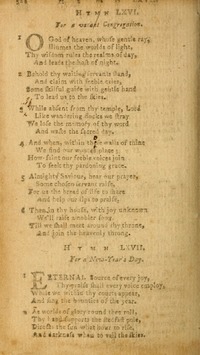 HYMN LXVI.
For a vacant Congregation.
1 O God of heaven, whose gentle ray
Illumes the worlds of light,
Thy wisdom rules the realms of day,
And leads the host of night.
2 Behold thy waiting servants stand,
And claim with feeble cries,
Some skilful guide with gentle hand
To lead us to the skies.
3 While absent from thy temple, Lord
Like wandering flocks we stray
We lose the memory of thy word
And waste the sacred day.
4 And when, within thy walls of
We find our wonted place;
How faint our feeble voices join
To seek thy pardoning grace.
5 Almighty Saviour, hear our prayer,
Some chosen servant raise,
For us the bread of life to share
And help our lips to praise,
6 Then in thy house, with joy unknown
We'll raise anew
Till we shall meet around thy throne,
And join the heavenly throng.
HYMN LXVII.
For a New-Year's Day.
1 ETERNAL Source of every joy,
Thy praise shall every voice employ,
While we within thy courts appear,
And sing the bounties of the year.
2 As worlds of glory round thee roll,
Thy hand supports the steadfast pole,
Directs the sun what hour to rise,
And darkness when to veil the skies.